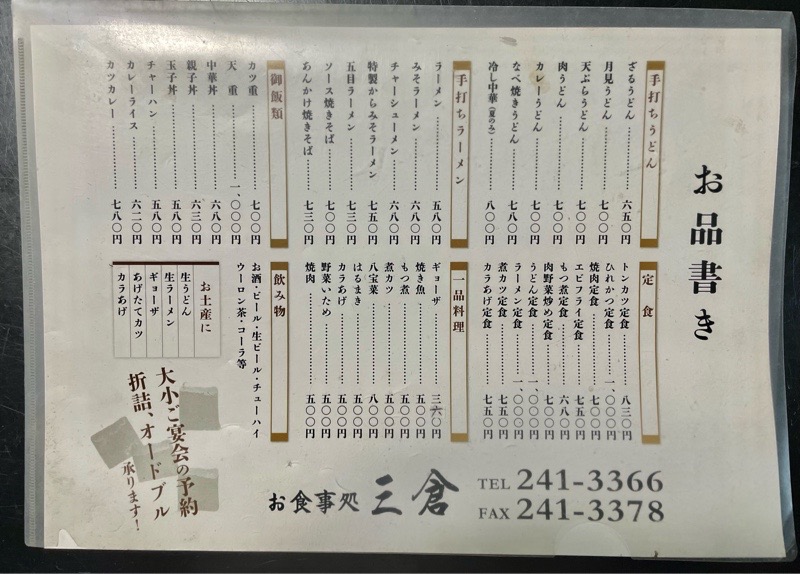 お品書き
手打ちうどん
ざるうどん……六五〇円
月見うどん……七〇〇円
天ぷらうどん……七〇〇円
肉うどん……七〇〇円
カレーうどん……七〇〇円
なべ焼きうどん……七八〇円
冷し中華(夏のみ)……八〇〇円
手打ちラーメン
ラーメン……五八〇円
みそラーメン……六八〇円
チャーシューメン……六八〇円
特製からみそラーメン……七五〇円
五目ラーメン……七三〇円
ソース焼きそば……七〇〇円
あんかけ焼きそば……七三〇円
御飯類
カツ重……七〇〇円
天重……一、〇〇〇円
中華丼……六八〇円
親子丼……六三〇円
玉子丼……五八〇円
チャーハン……五八〇円
カレーライス……六二〇円
カツカレー……七八〇円
定食
トンカツ定食……八三〇円
ひれかつ定食……一、〇〇〇円
焼肉定食……七〇〇円
エビフライ定食……七五〇円
もつ煮定食……六八〇円
肉野菜炒め定食……七〇〇円
うどん定食……一、〇〇〇円
ラーメン定食……一、〇〇〇円
煮カツ定食……七五〇円
カラあげ定食……七五〇円
一品料理
ギョーザ……三六〇円
焼き魚……五〇〇円
もつ煮……五〇〇円
煮カツ……六〇〇円
八宝菜……八〇〇円
はるまき……五〇〇円
カラあげ……五〇〇円
野菜いため……五〇〇円
焼肉……五〇〇円
飲み物
お酒・ビール・生ビール・チューハイ
ウーロン茶・コーラ等
お土産に
生うどん
生ラーメン
ギョーザ
あげたてカツ
カラあげ
大小ご宴会の予約
折詰、オードブル
承ります!
お食事処 三倉
TEL 241-3366
FAX 241-3378